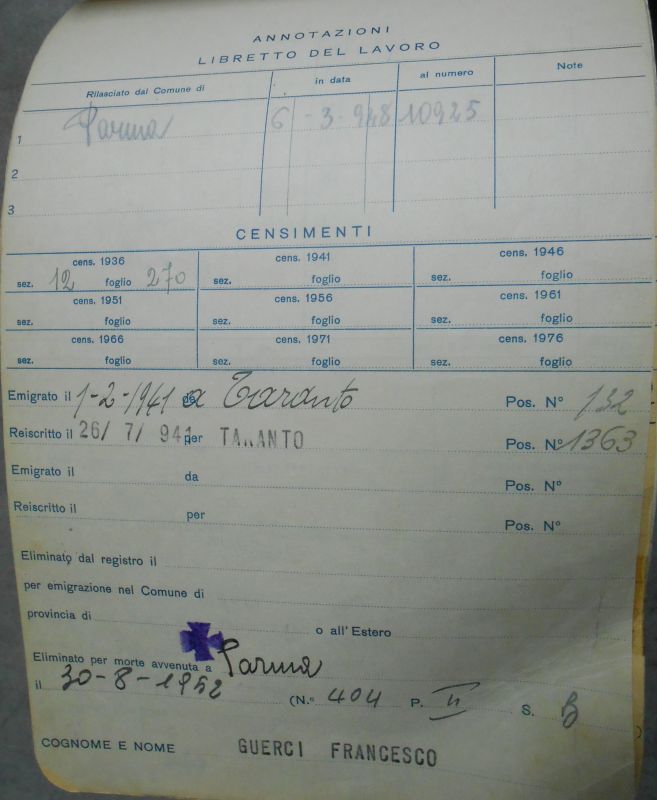 ANNOTAZIONI
LIBRETTO DEL LAVORO
Rilasciato dal Comune di in data al numero Note
1 Parma 6 - 3 - 948 10925
2
3
CENSIMENTI
cens. 1936 cens. 1941 cens. 1946
sez. 12 foglio 270 sez. foglio sez. foglio
cens. 1951 cens. 1956 cens. 1961
sez. foglio sez. foglio sez. foglio
cens. 1966 cens. 1971 cens. 1976
sez. foglio sez. foglio sez. foglio
Emigrato il 1-2-1941 a Taranto Pos. N° 132
Reiscritto il 26/ 7/ 941 per TARANTO Pos. N° 1363
Emigrato il da Pos. N°
Reiscritto il per Pos. N°
Eliminato dal registro il
per emigrazione nel Comune di
provincia di o all'Estero
Eliminato per morte avvenuta a Parma
il 30-8-1952 (N.° 404 P. II S. B )
COGNOME E NOME GUERCI FRANCESCO